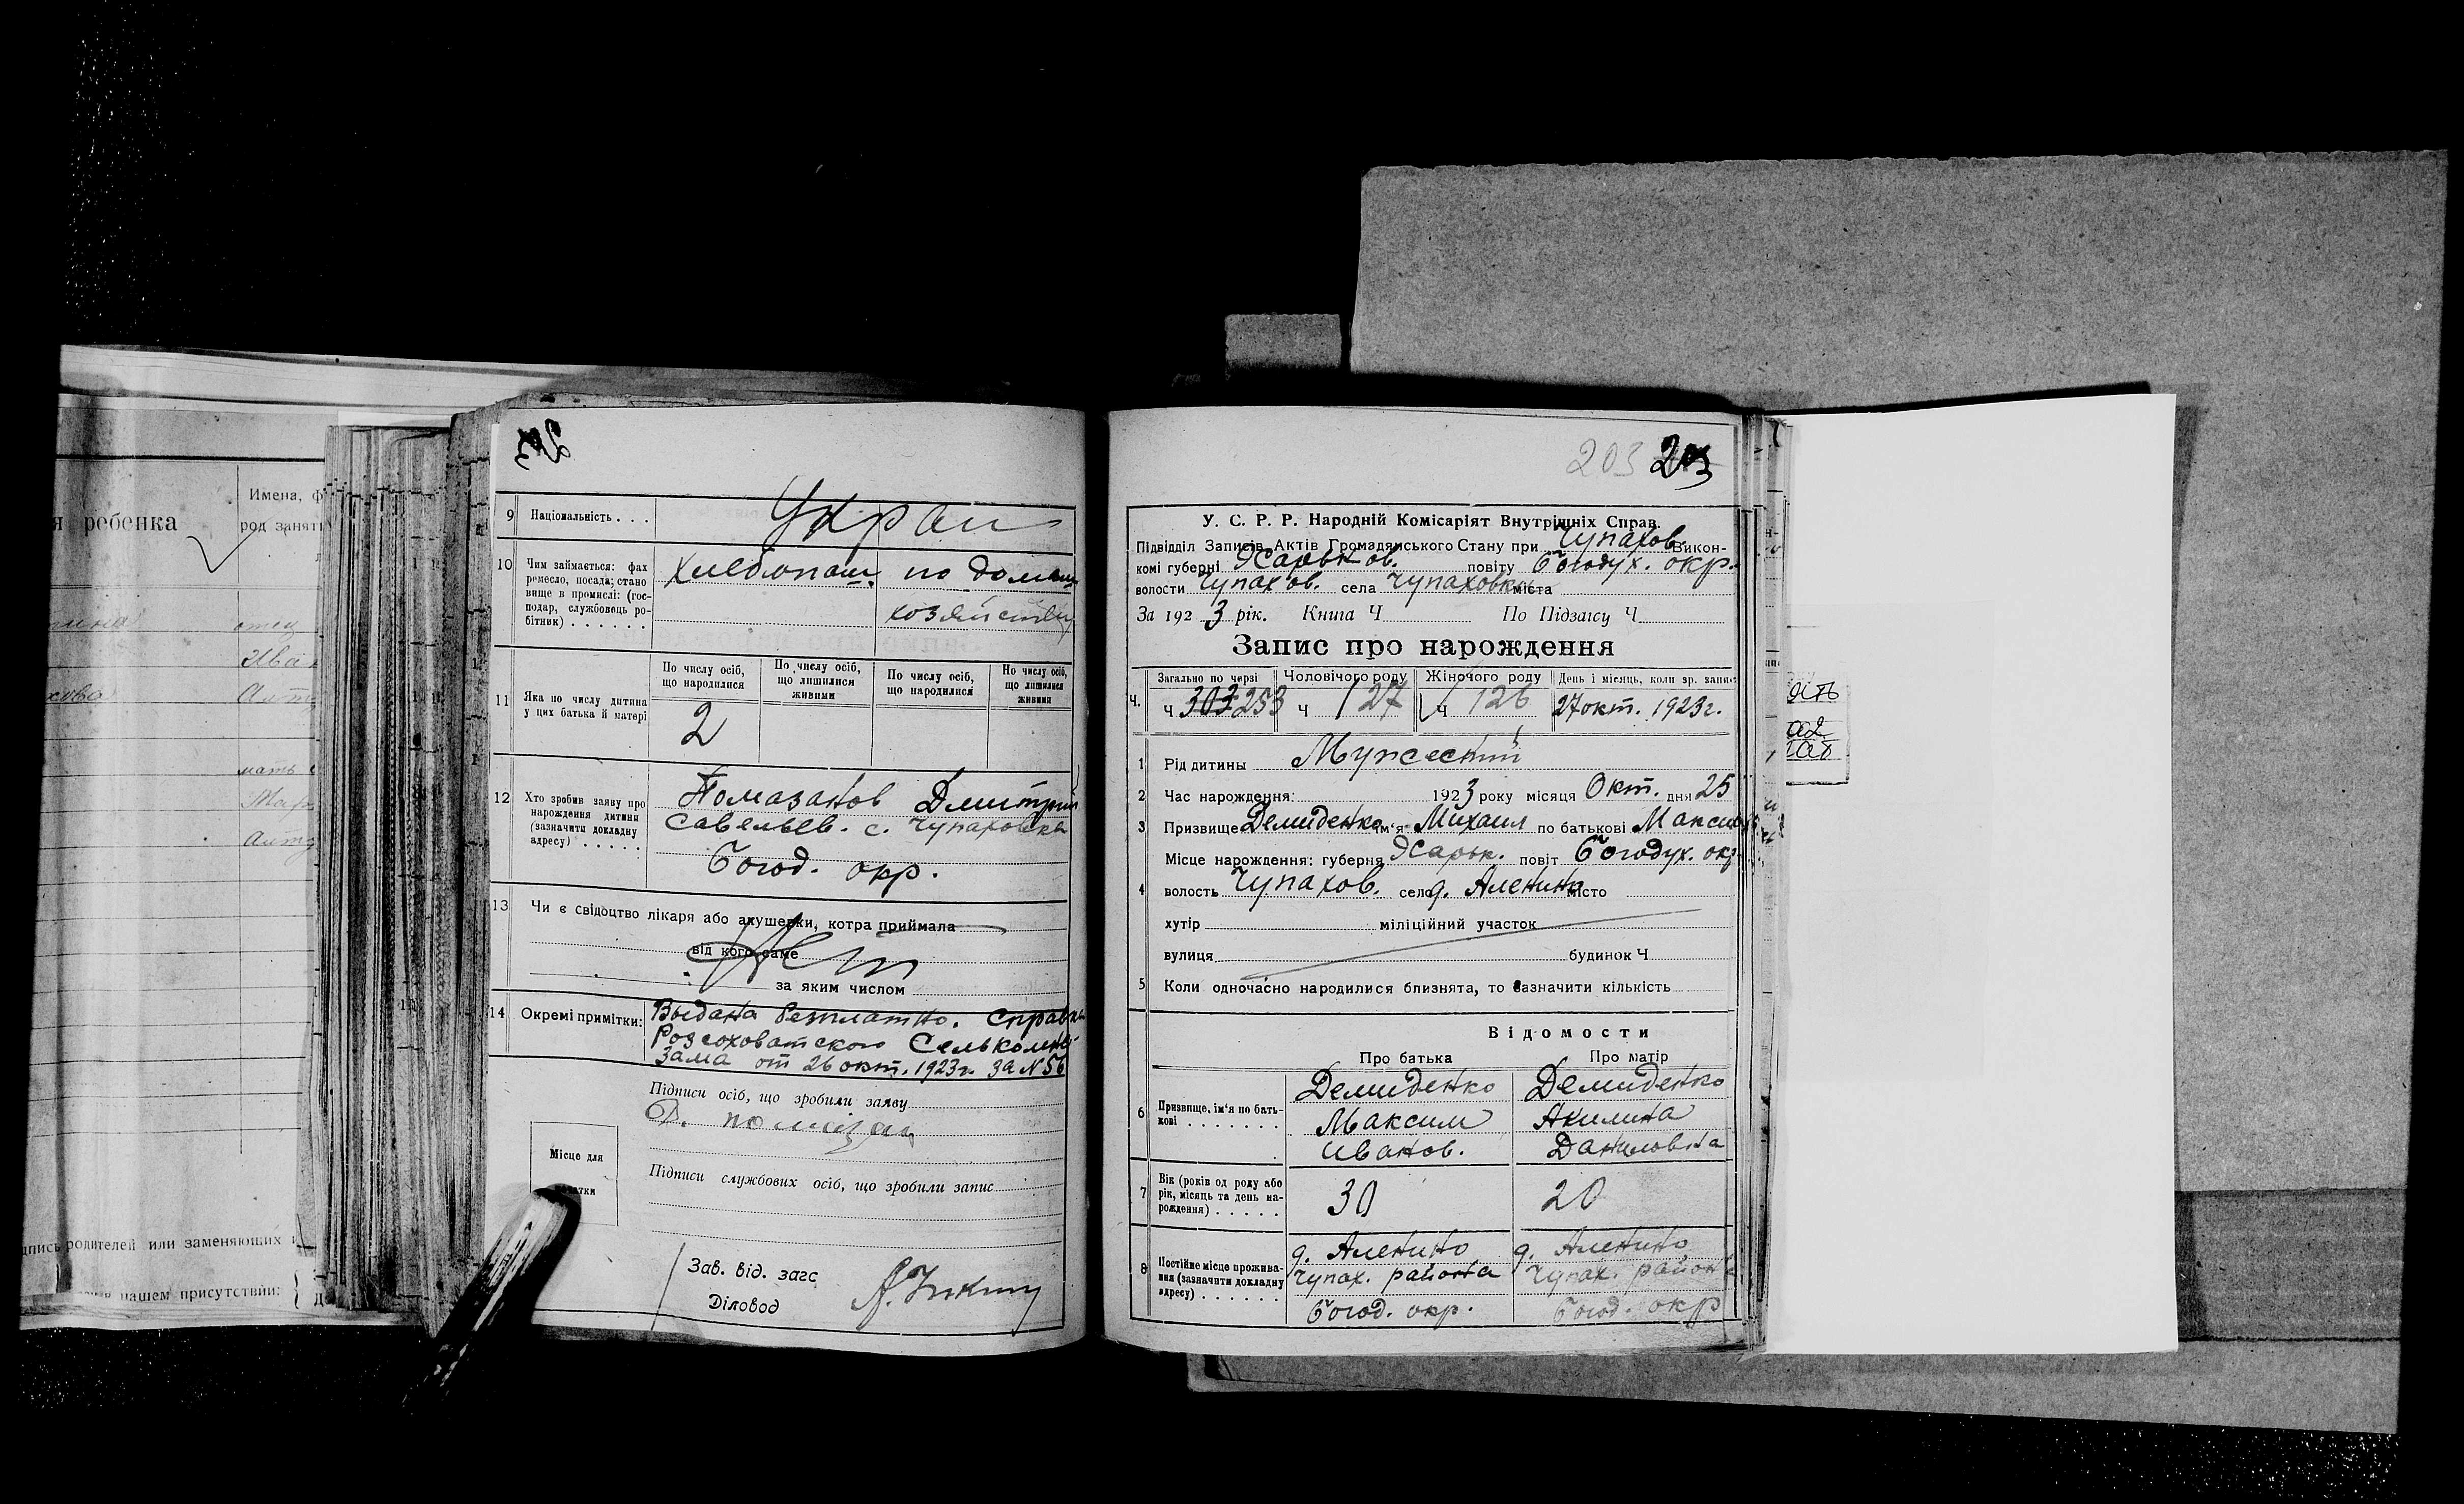 я ребенка
Имена, ф
род заняти
отец
Ива
мать
пись родителей или заменяющих
в нашем присутствии:
9 Національність . . . Украин
10 Чим займається: фах ремесло, посада; становище в промислі: (господар, службовець робітник) . . . . . .
Хлебопаш. по домашн.
хозяйству
11 Яка по числу дитина у цих батька й матері
По числу осіб, що народилися
По числу осіб, що лишилися живими
По числу осіб, що народилися
По числу осіб, що лишилися живими
2
12 Хто зробив заяву про нарождення дитини (зазначити докладну адресу) . . . . .
Помазанов Дмитрий
Савельев. с. Чупаховка
Богод. окр.
13 Чи є свідоцтво лікаря або акушерки, котра приймала
від кого саме Нет
за яким числом
14 Окремі примітки: Выдана безплатно. Справка
Розсоховатского Селькомне-
зама от 26 окт. 1923 г. за № 56
Підписи осіб, що зробили заяву
Д. помазан
Місце для
Підписи службових осіб, що зробили запис
Зав. від. загс
Діловод
203 203
У. С. Р. Р. Народній Комісаріят Внутрішніх Справ.
Підвідділ Записів Актів Громадянського Стану при Чупахов. Викон-
комі губерні Харьков. повіту Богодух. окр.
волости Чупахов. села Чупаховки міста
За 1923 рік. Книга Ч По Підзагсу Ч
Запис про нарождення
Загально по черзі Чоловічого роду Жіночого роду День і місяць, коли зр. запис
Ч. ч 303 253 ч 127 ч 126 27 окт. 1923 г.
1 Рід дитины Мужеский
2 Час нарождення: 1923 року місяця Окт. дня 25
3 Призвище Демиденко ім'я Михаил по батькові Максим
Місце нарождення: губерня Харьк. повіт Богодух. окр
4 волость Чупахов. село д. Аленино місто
хутір міліційний участок
вулиця будинок Ч
5 Коли одночасно народилися близнята, то зазначити кількість
Відомости
Про батька Про матір
6 Призвище, ім'я по батькові . . . . . . .
Демиденко Демиденко
Максим Акилина
Иванов. Даниловна
7 Вік (років од роду або рік, місяць та день народження) . . . . .
30 20
8 Постійне місце проживання (зазначити докладну адресу) . . . . . .
д. Аленино д. Аленино
Чупах. района Чупах. района
Богод. окр. Богод. окр